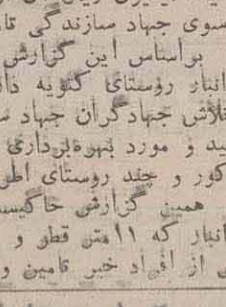 سوی جهاد سازندگی
براساس این گزارش
انبار روستای گنویه
تلاش جهادگران جهاد
ید و مورد بهره‌برداری
کور و چند روستای
همین گزارش حاکیست
انبار که ۱۱ متر قطر و
ی از افراد خیر تامین و